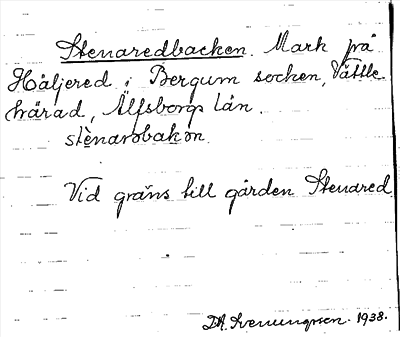 Stenaredbacken. Mark på
Håljered i Bergum socken, Vättle
härad, Älfsborgs län.
stènarsbakɔn.
Vid gräns till gården Stenared
1938.